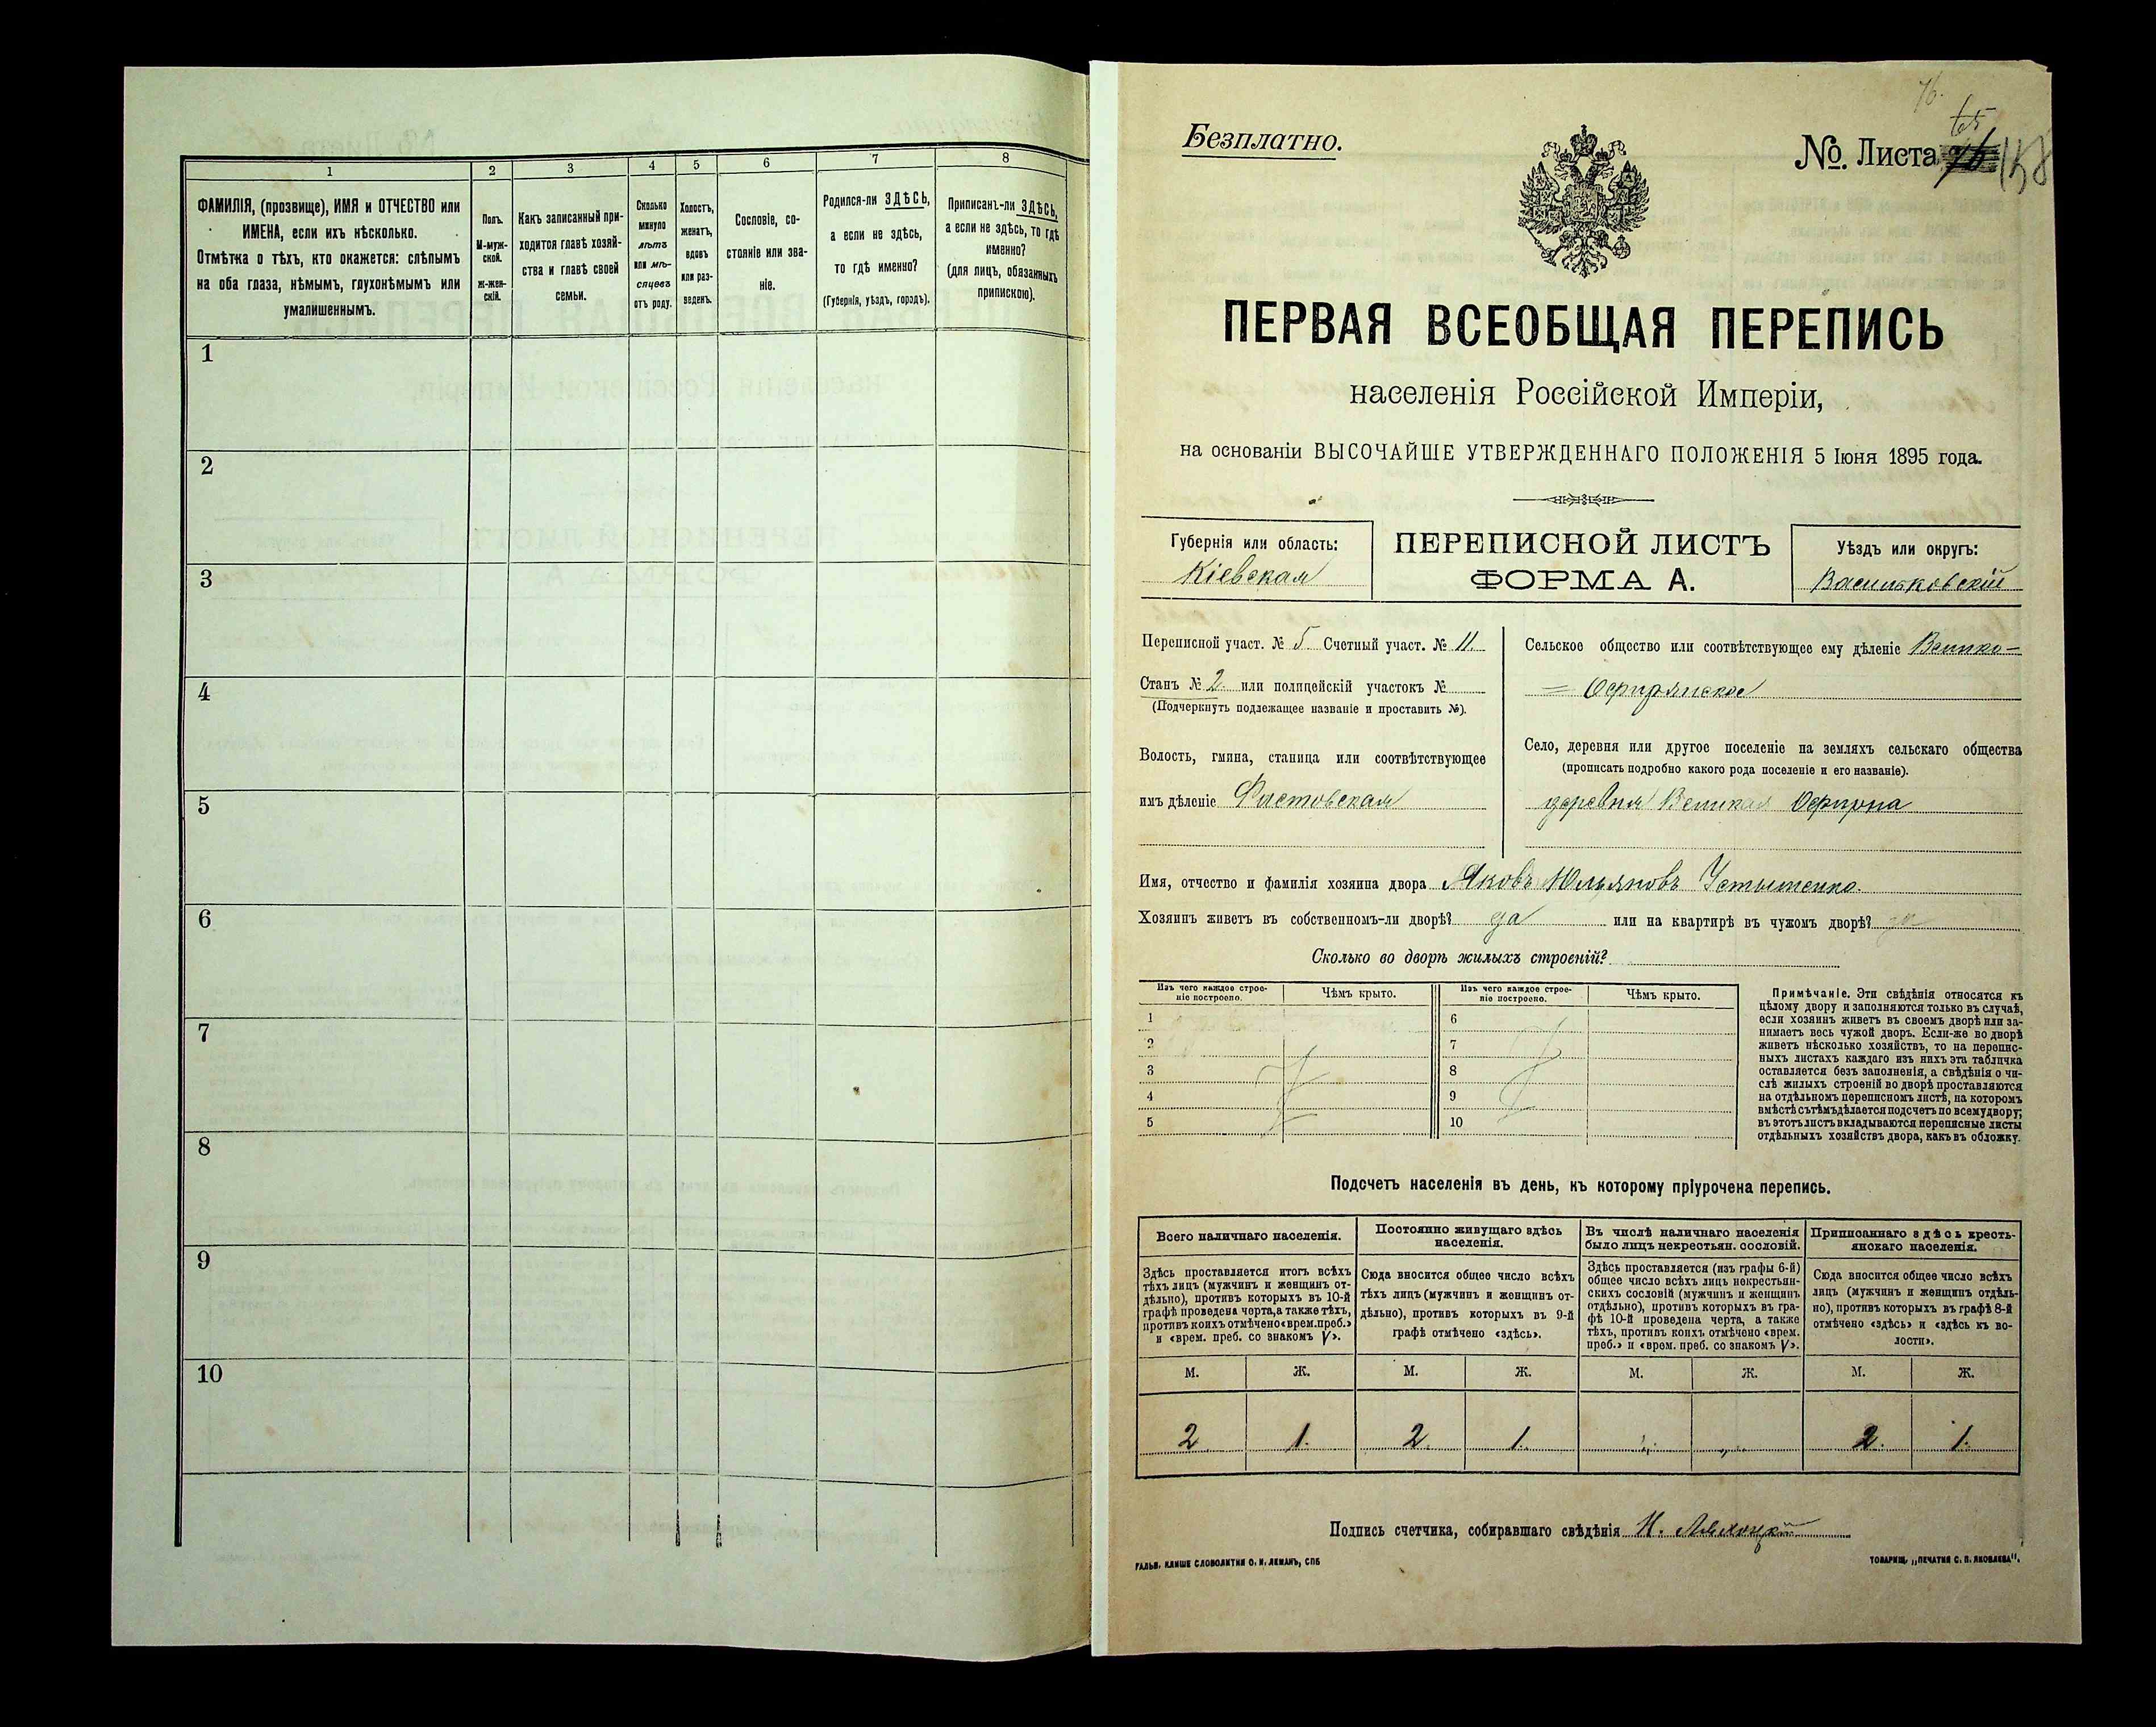 1
2
3
4
5
6
7
8
ФАМИЛІЯ, (прозвище), ИМЯ и ОТЧЕСТВО или
ИМЕНА, если ихъ нѣсколько.
Отмѣтка о тѣхъ, кто окажется: слѣпымъ
на оба глаза, нѣмымъ, глухонѣмымъ или
умалишеннымъ.
Полъ.
М-муж-
ской.
ж-жен-
скій.
Какъ записанный при-
ходится главѣ хозяй-
ства и главѣ своей
семьи.
Сколько
минуло
лѣтъ
или мѣ-
сяцевъ
отъ роду.
Холостъ,
женатъ,
вдовъ
или раз-
веденъ.
Сословіе, со-
стояніе или зва-
ніе.
Родился-ли ЗДѢСЬ,
а если не здѣсь,
то гдѣ именно?
(Губернія, уѣздъ, городъ).
Приписанъ-ли ЗДѢСЬ,
а если не здѣсь, то гдѣ
именно?
(для лицъ, обязанныхъ
припискою).
1
2
3
4
5
6
7
8
9
10
76.
65
Безплатно.
№. Листа 158
ПЕРВАЯ ВСЕОБЩАЯ ПЕРЕПИСЬ
населенія Россійской Имперіи,
на основаніи ВЫСОЧАЙШЕ УТВЕРЖДЕННАГО ПОЛОЖЕНІЯ 5 Іюня 1895 года.
Губернія или область:
Кіевская
ПЕРЕПИСНОЙ ЛИСТЪ
ФОРМА А.
Уѣздъ или округъ:
Васильковскій
Переписной участ. № 5 Счетный участ. № 11.
Станъ № 2. или полицейскій участокъ №
(Подчеркнуть подлежащее названіе и проставить №).
Волость, гмина, станица или соотвѣтствующее
имъ дѣленіе Фастовская
Сельское общество или соотвѣтствующее ему дѣленіе Велико-
= Офирнянское
Село, деревня или другое поселеніе на земляхъ сельскаго общества
(прописать подробно какого рода поселеніе и его названіе).
деревня Великая Офирна
Имя, отчество и фамилія хозяина двора Яковъ Юльяновъ Устименко.
Хозяинъ живетъ въ собственномъ-ли дворѣ? да или на квартирѣ въ чужомъ дворѣ?
Сколько во дворѣ жилыхъ строеній?
Изъ чего каждое строе-
ніе построено.
Чѣмъ крыто.
Изъ чего каждое строе-
ніе построено.
Чѣмъ крыто.
1
2
3
4
5
6
7
8
9
10
Примѣчаніе. Эти свѣдѣнія относятся къ
цѣлому двору и заполняются только въ случаѣ,
если хозяинъ живетъ въ своемъ дворѣ или за-
нимаетъ весь чужой дворъ. Если-же во дворѣ
живетъ нѣсколько хозяйствъ, то на перепис-
ныхъ листахъ каждаго изъ нихъ эта табличка
оставляется безъ заполненія, а свѣдѣнія о чи-
слѣ жилыхъ строеній во дворѣ проставляются
на отдѣльномъ переписномъ листѣ, на которомъ
вмѣстѣ съ тѣмъ дѣлается подсчетъ по всему двору;
въ этотъ листъ вкладываются переписные листы
отдѣльныхъ хозяйствъ двора, какъ въ обложку.
Подсчетъ населенія въ день, къ которому пріурочена перепись.
Всего наличнаго населенія.
Постоянно живущаго здѣсь
населенія.
Въ числѣ наличнаго населенія
было лицъ некрестьян. сословій.
Приписаннаго здѣсь кресть-
янскаго населенія.
Здѣсь проставляется итогъ всѣхъ
тѣхъ лицъ (мужчинъ и женщинъ от-
дѣльно), противъ которыхъ въ 10-й
графѣ проведена черта, а также тѣхъ,
противъ коихъ отмѣчено «врем. преб.»
и «врем. преб. со знакомъ V».
Сюда вносится общее число всѣхъ
тѣхъ лицъ (мужчинъ и женщинъ от-
дѣльно), противъ которыхъ въ 9-й
графѣ отмѣчено «здѣсь».
Здѣсь проставляется (изъ графы 6-й)
общее число всѣхъ лицъ некрестьян-
скихъ сословій (мужчинъ и женщинъ
отдѣльно), противъ которыхъ въ гра-
фѣ 10-й проведена черта, а также
тѣхъ, противъ коихъ отмѣчено «врем.
преб.» и «врем. преб. со знакомъ V».
Сюда вносится общее число всѣхъ
лицъ (мужчинъ и женщинъ отдѣль-
но), противъ которыхъ въ графѣ 8-й
отмѣчено «здѣсь» и «здѣсь къ во-
лости».
М. Ж. М. Ж. М. Ж. М. Ж.
2 1. 2. 1. „ „ 2. 1.
Подпись счетчика, собиравшаго свѣдѣнія Н.
ГАЛЬВ. КЛИШЕ СЛОВОЛИТНИ О. И. ЛЕМАНЪ, СПБ
ТОВАРИЩ. „ПЕЧАТНЯ С. П. ЯКОВЛЕВА".